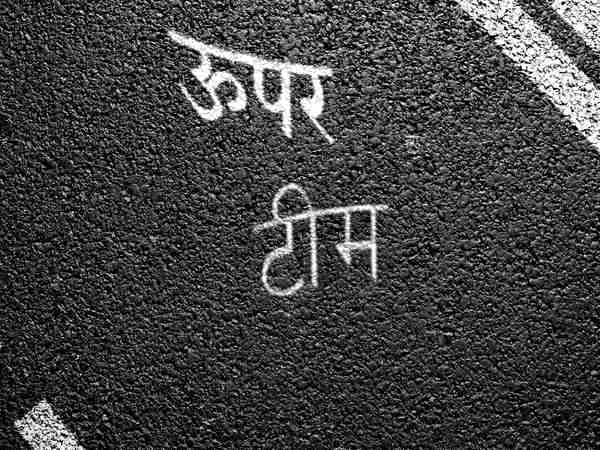 ऊपर
टीम